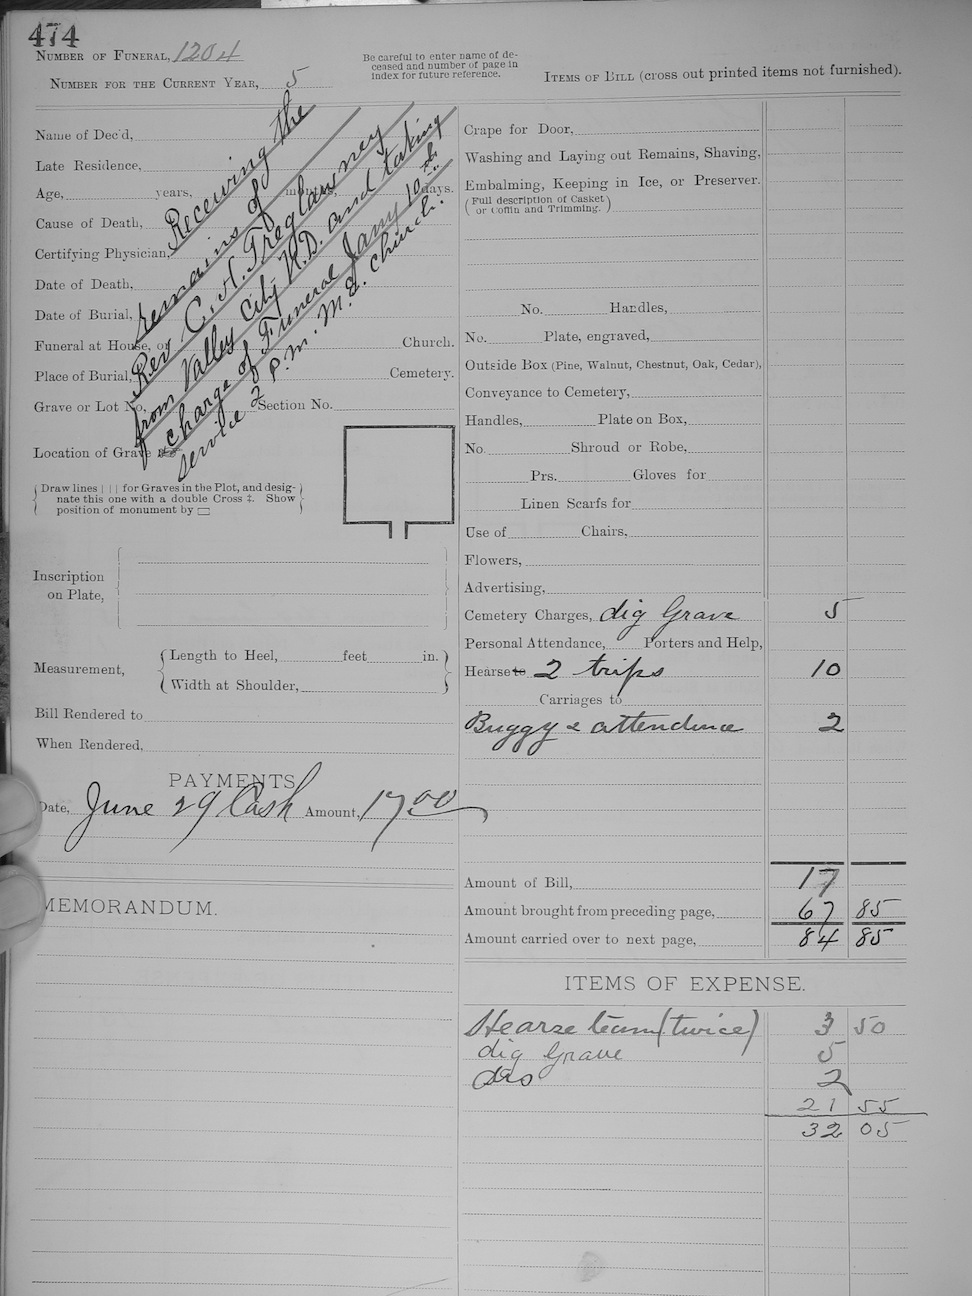 474
NUMBER OF FUNERAL, 1204
NUMBER FOR THE CURRENT YEAR, 5
Be careful to enter name of de-
ceased and number of page in
index for future reference.
ITEMS OF BILL (cross out printed items not furnished).
Name of Dec'd,
Late Residence,
Age, years, months, days.
Cause of Death,
Certifying Physician,
Date of Death,
Date of Burial,
Funeral at House, or Church.
Place of Burial, Cemetery.
Grave or Lot No, Section No.
Location of Grave
Receiving the
remains of
Rev C. H. Treglawney
from Valley City N.D. and taking
charge of Funeral Jany 10th
service 2 P.M. M.E. Church.
Draw lines | | | for Graves in the Plot, and desig-
nate this one with a double Cross ‡. Show
position of monument by ▭
Inscription
on Plate,
Measurement,
Length to Heel, feet in.
Width at Shoulder,
Bill Rendered to
When Rendered,
PAYMENTS
Date, June 29 Cash Amount, 17 00
MEMORANDUM.
Crape for Door,
Washing and Laying out Remains, Shaving,
Embalming, Keeping in Ice, or Preserver.
(Full description of Casket
or Coffin and Trimming.)
No. Handles,
No. Plate, engraved,
Outside Box (Pine, Walnut, Chestnut, Oak, Cedar),
Conveyance to Cemetery,
Handles, Plate on Box,
No. Shroud or Robe,
Prs. Gloves for
Linen Scarfs for
Use of Chairs,
Flowers,
Advertising,
Cemetery Charges, dig Grave 5
Personal Attendance, Porters and Help,
Hearse to 2 trips 10
Carriages to
Buggy & attendence 2
Amount of Bill, 17
Amount brought from preceding page, 67 85
Amount carried over to next page, 84 85
ITEMS OF EXPENSE.
Hearse team (twice) 3 50
dig Grave 5
2
21 55
32 05